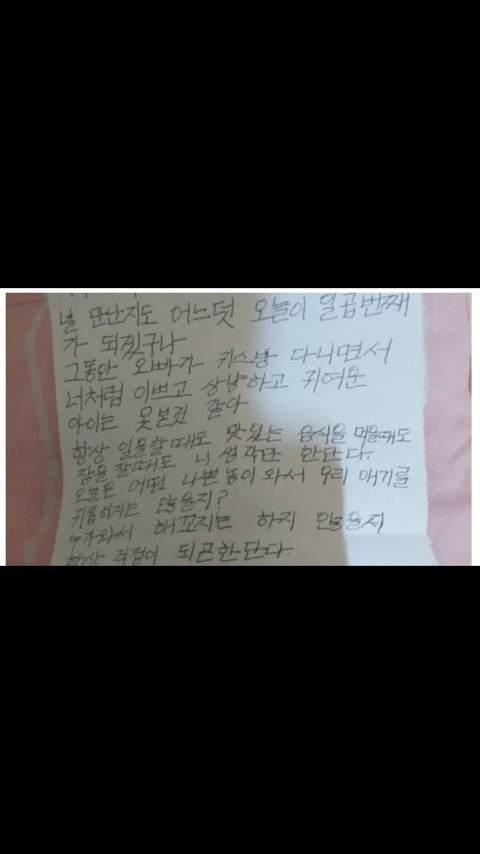 널 만난지도 어느덧 오늘이 일곱번째
가 되겠구나
그동안 오빠가 키스방 다니면서
너처럼 이쁘고 상냥하고 귀여운
아이는 못본것 같아
항상 일을할때도 맛있는 음식을 먹을때도
잠을 잘때도 니 생각만 한단다.
오늘은 어떤 나쁜놈이 와서 우리 애기를
괴롭히지는 않을지?
누가와서 해꼬지는 하지 않을지
항상 걱정이 되곤한단다.